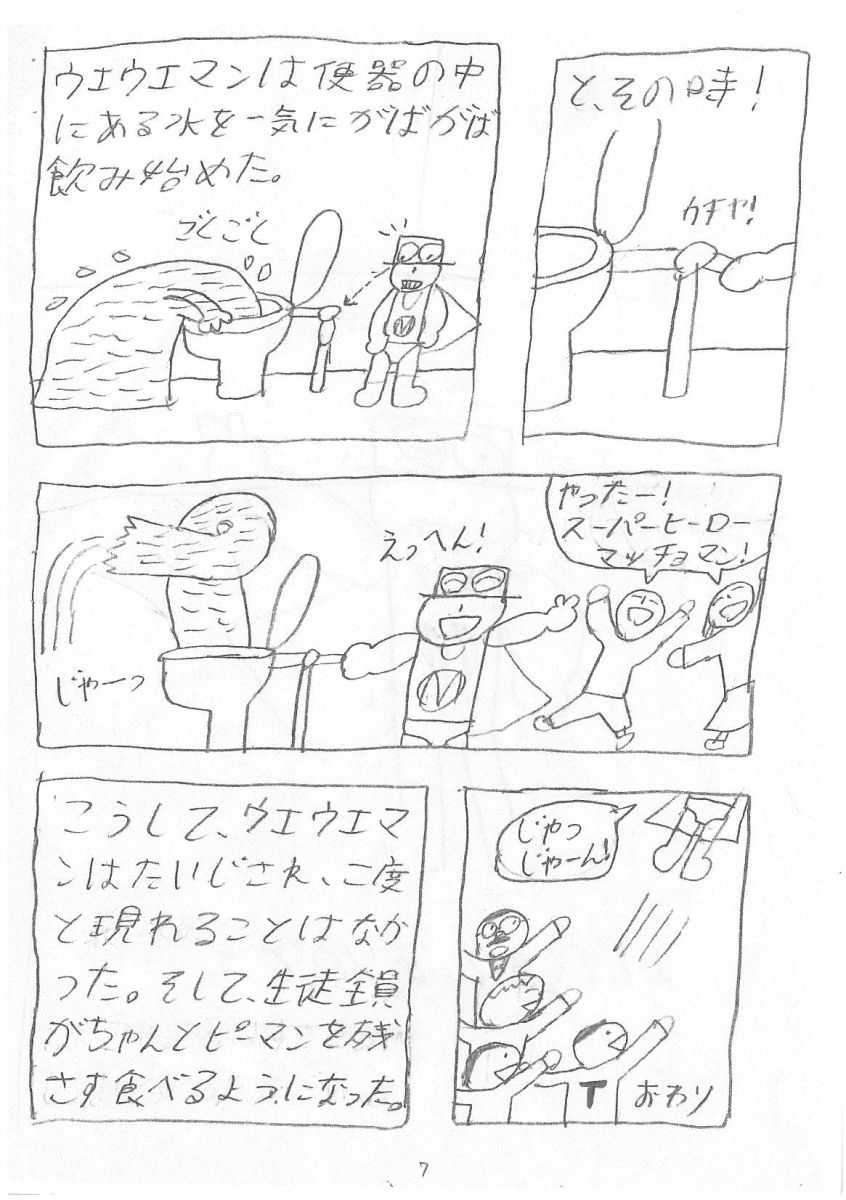 ウエウエマンは便器の中
にある水を一気にがばがば
飲み始めた。
ごくごく
M
と、その時！
カチャ！
じゃーっ
えっへん！
M
やったー！
スーパーヒーロー
マッチョマン！
こうして、ウエウエマ
ンはたいじされ、二度
と現れることはなか
った。そして、生徒全員
がちゃんとピーマンを残
さす食べるようになった。
じゃっ
じゃーん！
T
おわり
7